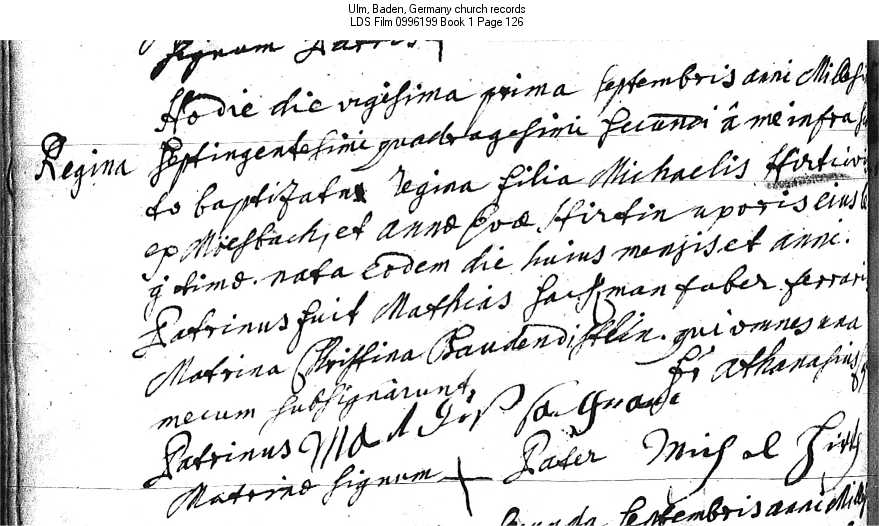 Ulm, Baden, Germany church records
LDS Film 0996199 Book 1 Page 126
signum Patris
Hodie die vigesima prima septembris anni Millesi
Regina septingentesimi quadragesimi secundi â me infra s
to baptizata Regina filia Michaelis Hirt civi
ex Moesbach, et annæ Evæ Hirtin uxoris eius le
gitimæ. nata eodem die huius mensis et anni.
Patrinus fuit Mathias hachman faber ferrari
Matrina Christina Baudendistlin. qui omnes una
mecum subsignarunt fr athanasius
Patrinus
Matrinæ signum + Pater Michel Hirth
septembris anni Mill